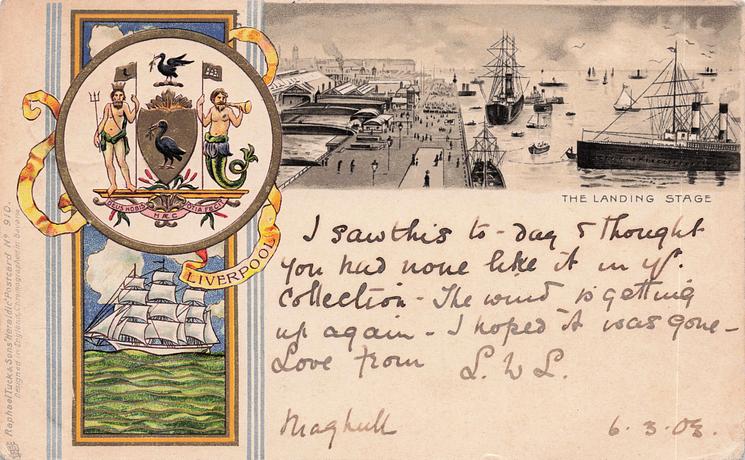 DEUS NOBIS HÆC OTIA FECIT
LIVERPOOL
THE LANDING STAGE
I saw this to-day & thought
you had none like it in yr.
Collection - The wind is getting
up again - I hoped it was gone -
Love from L. W. L.
Maghull 6.3.03.
Raphael Tuck & Sons' "Heraldic" Postcard Nº 910.
Designed in England, Chromographed in Bavaria.